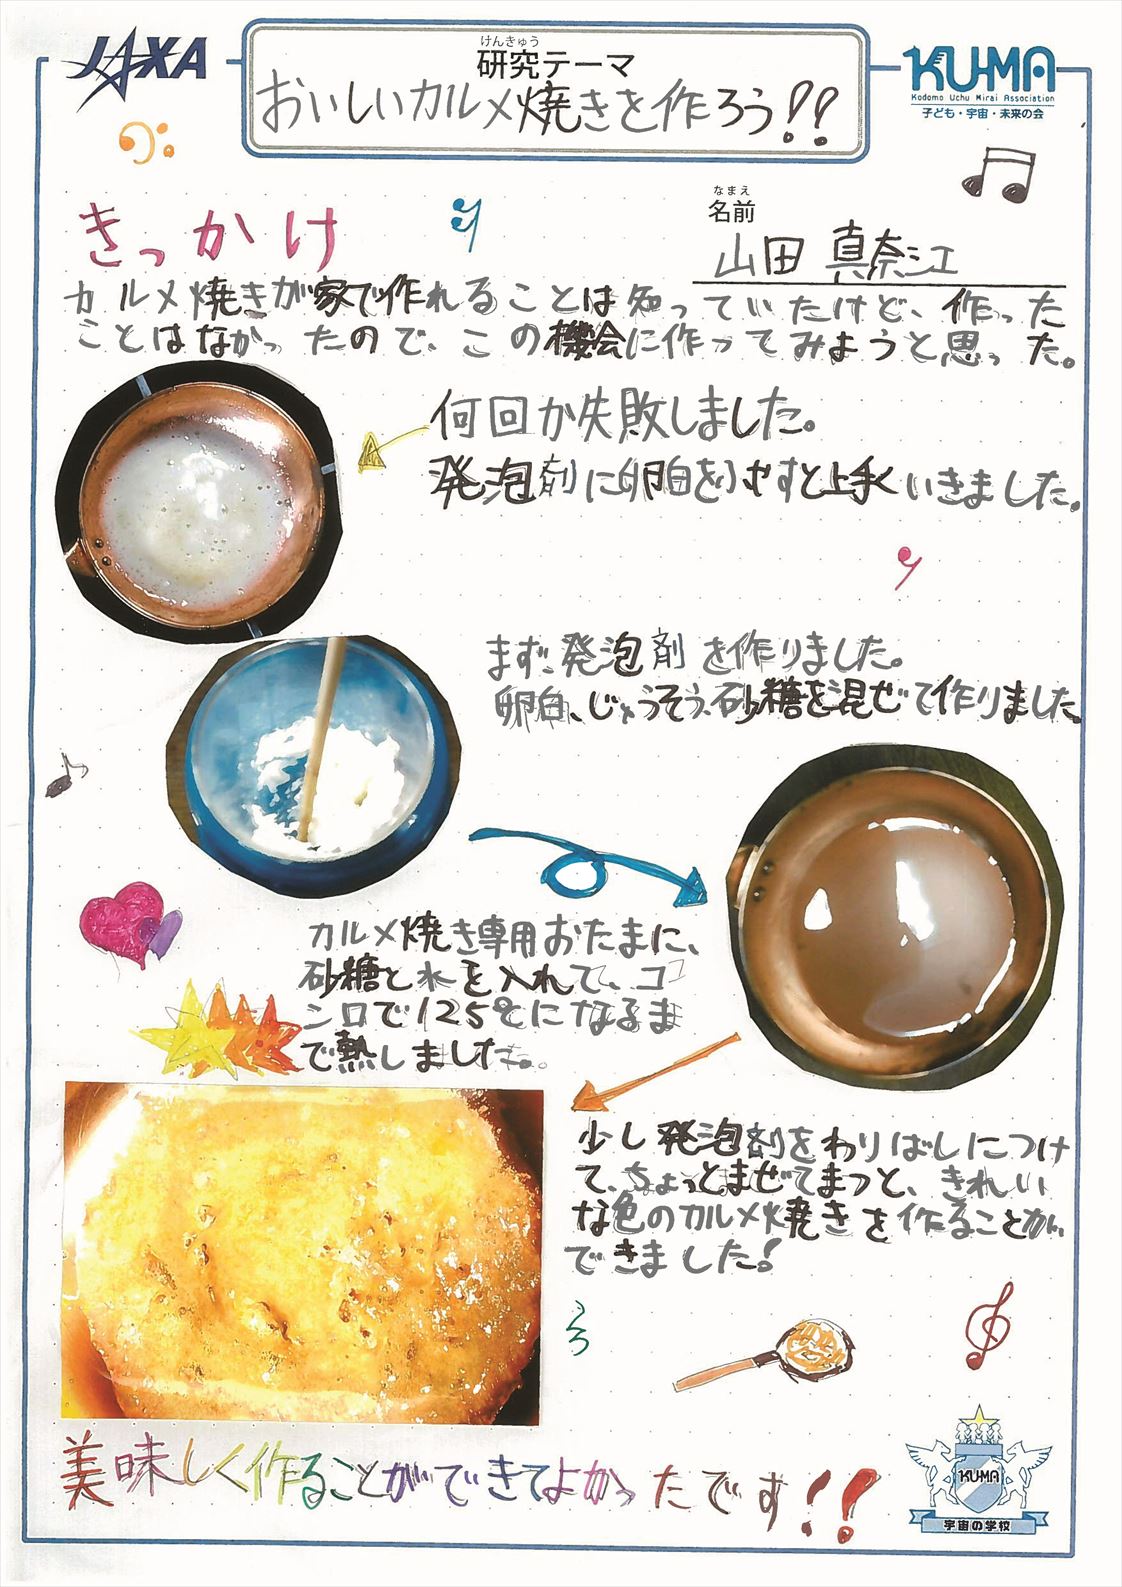 JAXA
けんきゅう
研究テーマ
おいしいカルメ焼きを作ろう!!
KU-MA
Kodomo Uchu Mirai Association
子ども・宇宙・未来の会
きっかけ
なまえ
名前
山田 真奈江
カルメ焼きが家で作れることは知っていたけど、作った
ことはなかったので、この機会に作ってみようと思った。
何回か失敗しました。
発泡剤に卵白をふやすと上手くいきました。
まず、発泡剤を作りました。
卵白、じゅうそう、砂糖を混ぜて作りました
カルメ焼き専用おたまに、
砂糖と水を入れて、コ
ンロで125℃になるま
で熱しました。
少し発泡剤をわりばしにつけ
て、ちょっとまぜてまつと、きれい
な色のカルメ焼きを作ることが
できました!
美味しく作ることができてよかったです!!
KU-MA
宇宙の学校